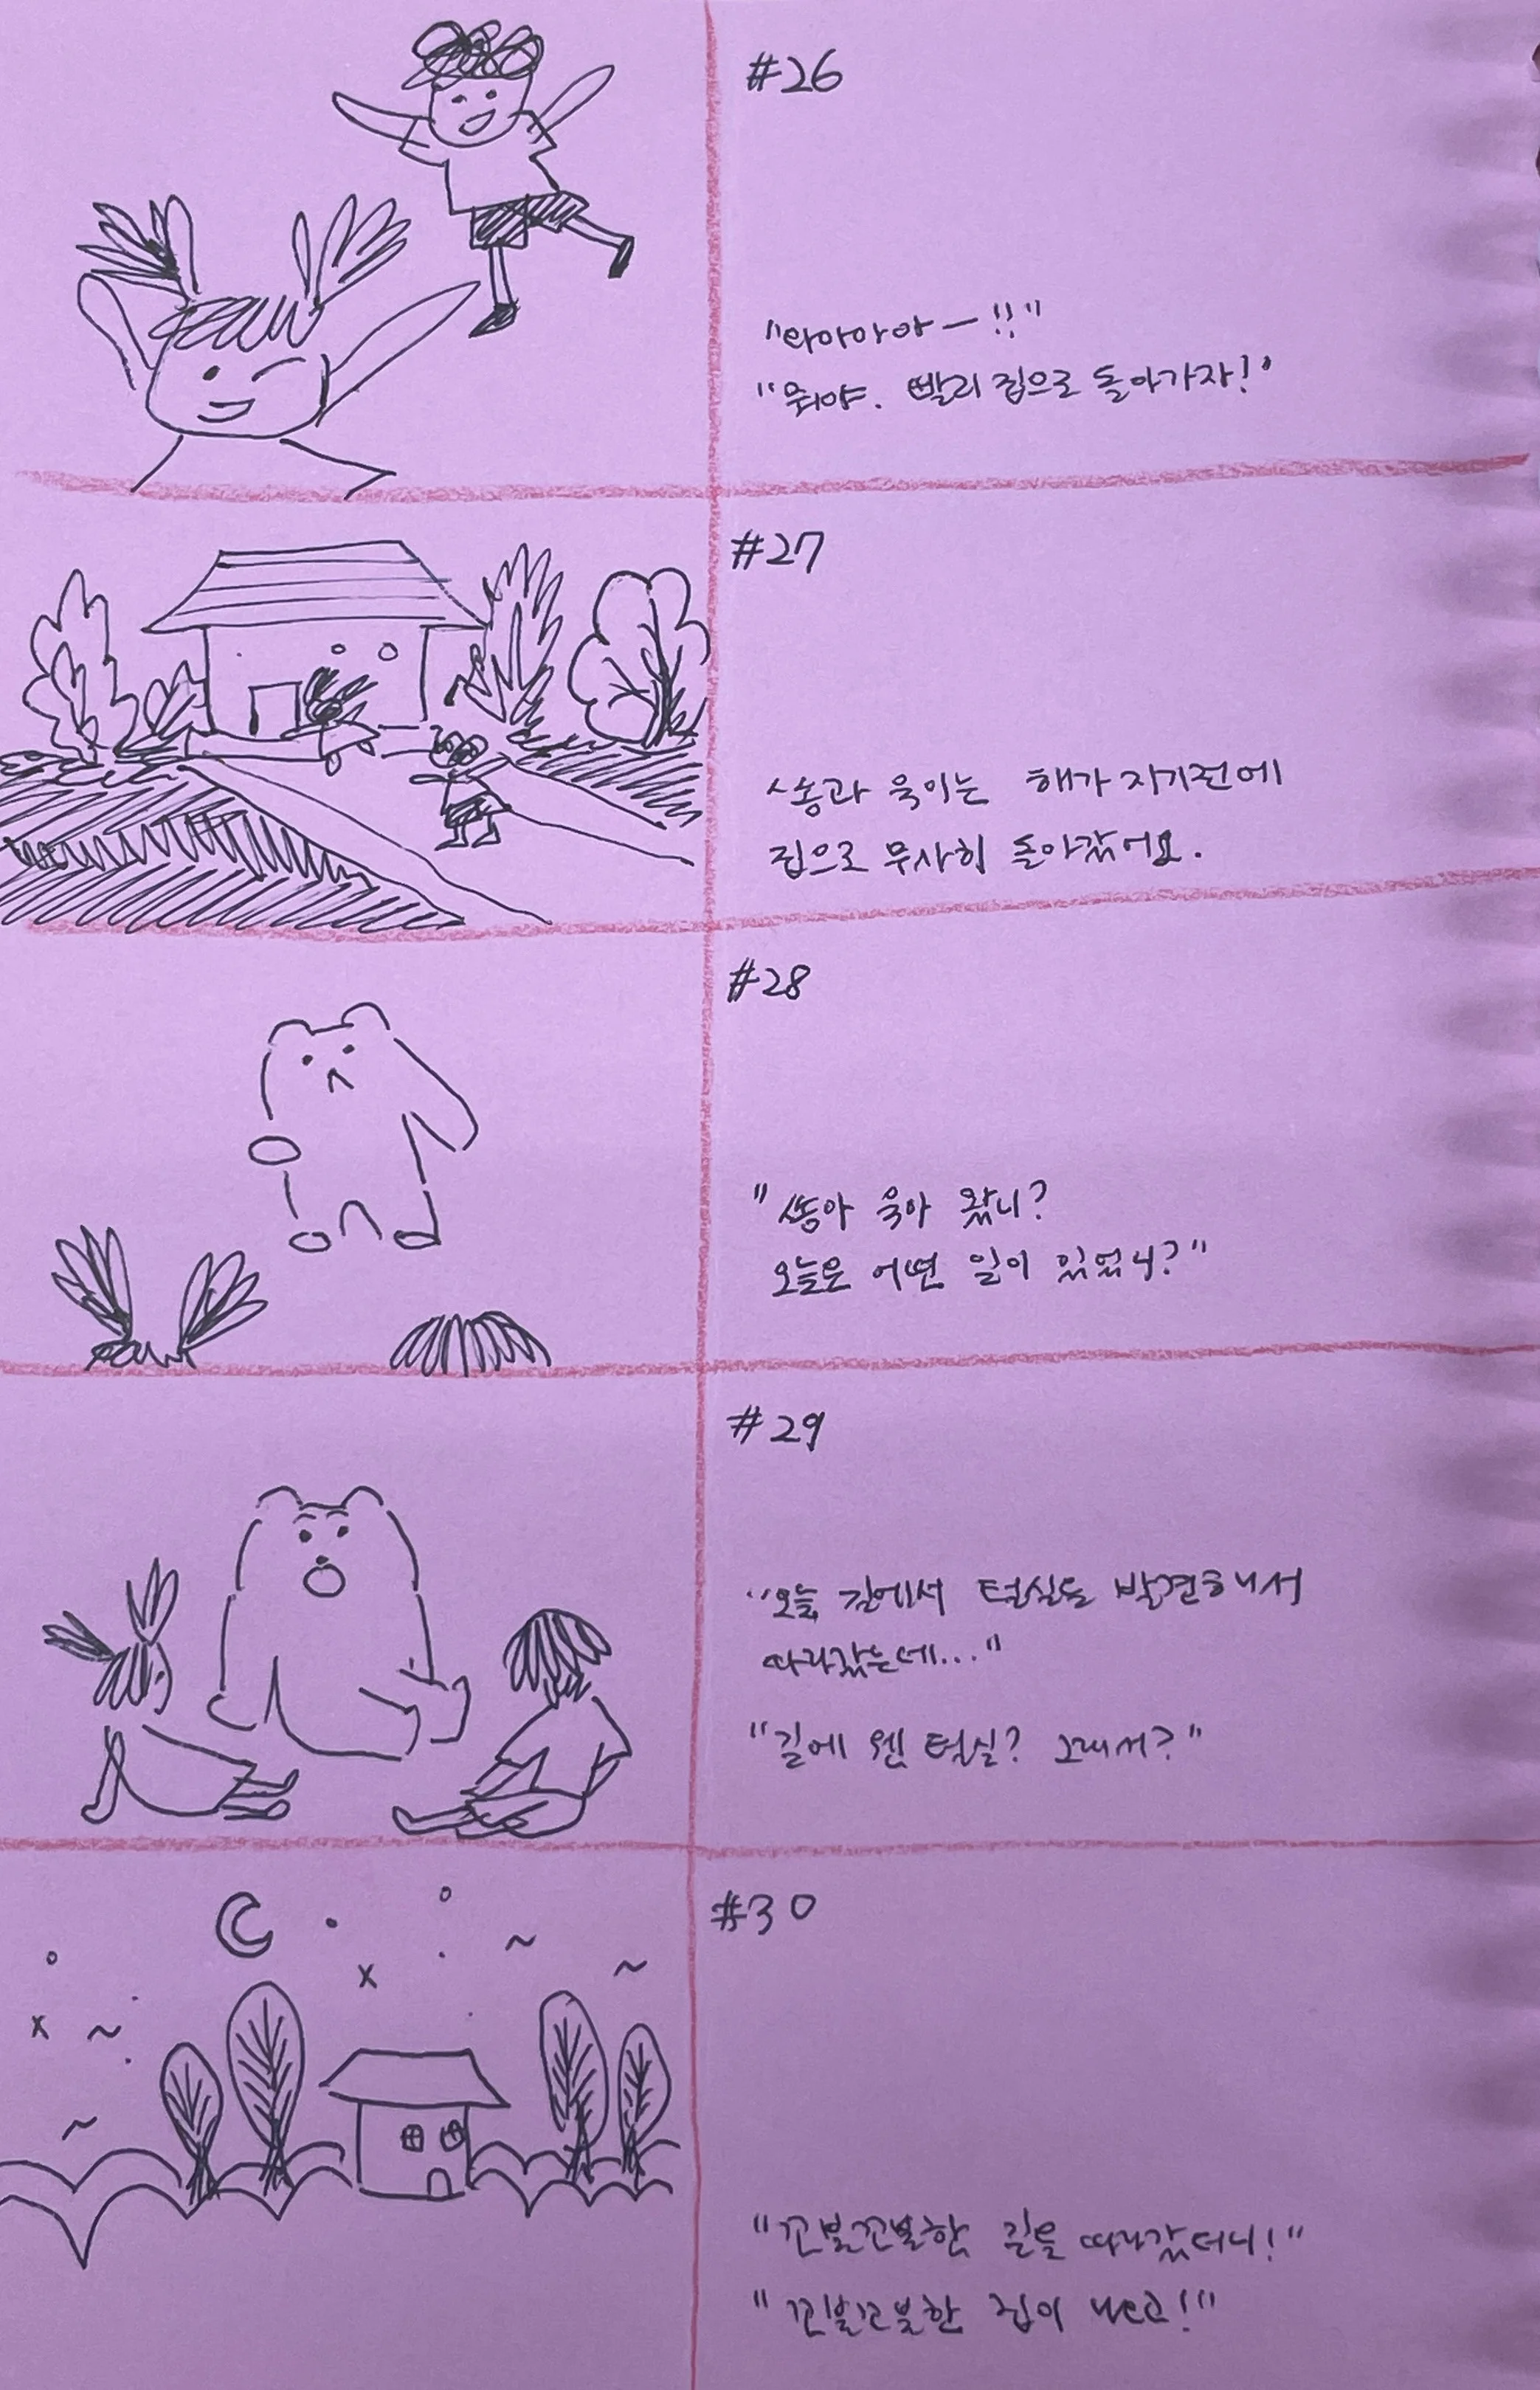 #26
"와아아아ㅡ!!"
"뭐야. 빨리 집으로 돌아가자!"
#27
쏭과 욱이는 해가 지기전에
집으로 무사히 돌아갔어요.
#28
"쏭아 욱아 왔니?
오늘은 어떤 일이 있었니?"
#29
"오늘 길에서 털실을 발견해서
따라갔는데..."
"길에 웬 털실? 그래서?"
#30
"꼬불꼬불한 길을 따라갔더니!"
"꼬불꼬불한 집이